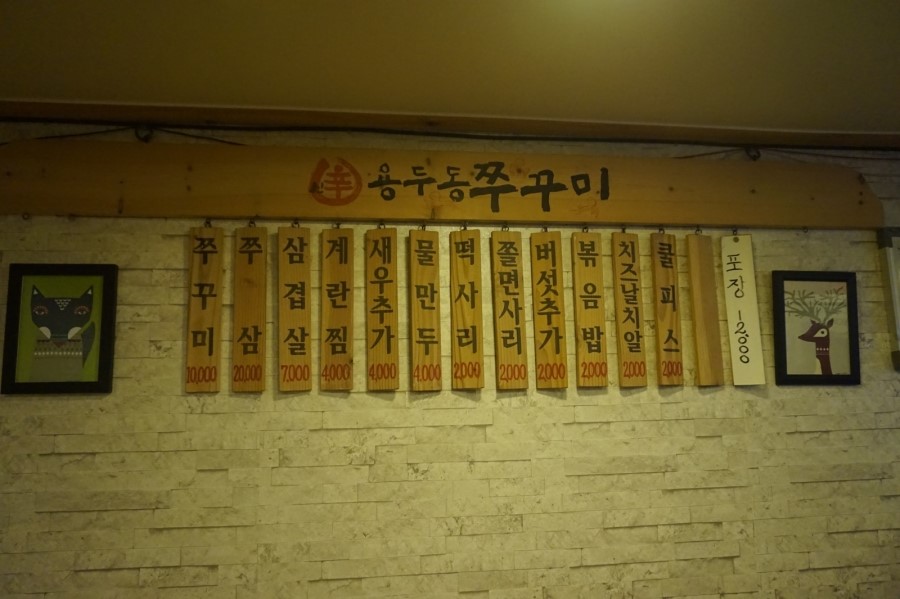 용두동쭈꾸미
쭈꾸미 10,000
쭈삼 20,000
삼겹살 7,000
계란찜 4,000
새우추가 4,000
물만두 4,000
떡사리 2,000
쫄면사리 2,000
버섯추가 2,000
볶음밥 2,000
치즈날치알 2,000
쿨피스 2,000
포장 12000